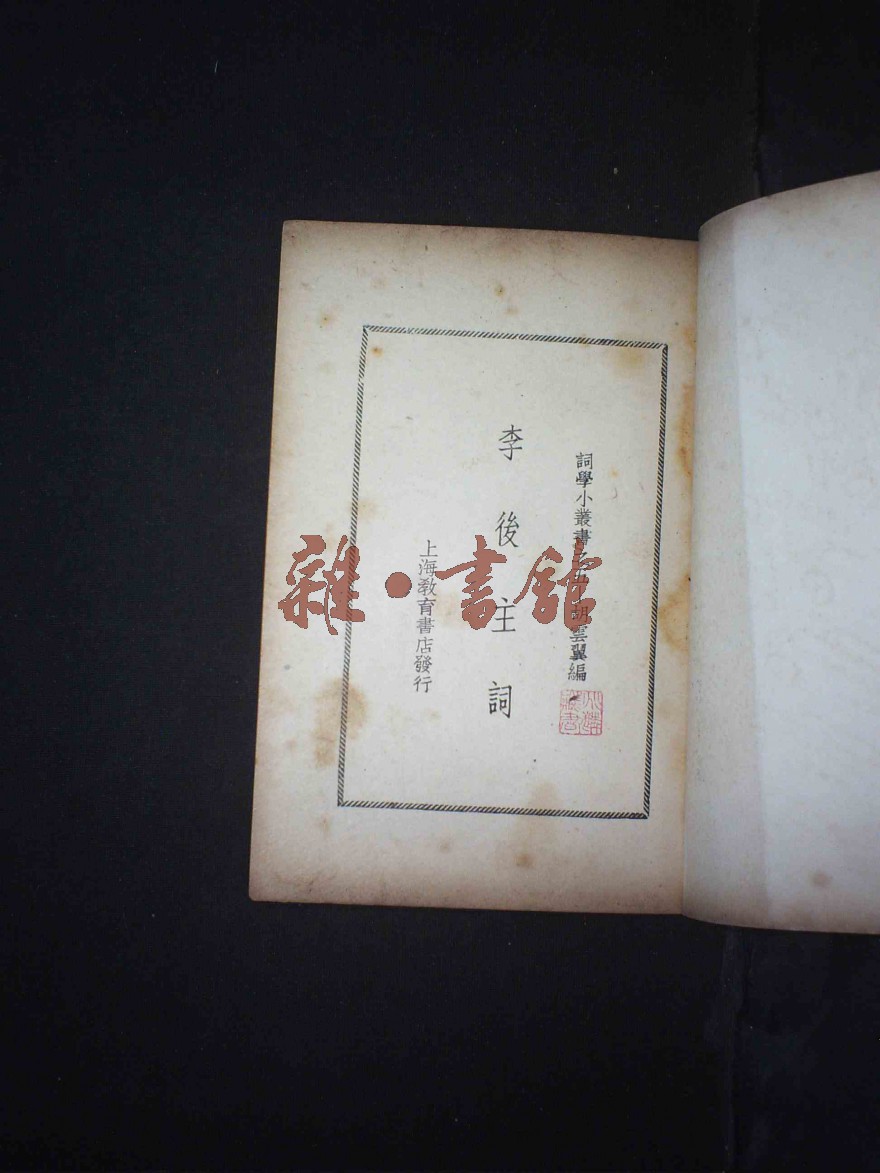 詞學小叢書之五 胡雲翼編
李後主詞
上海教育書店發行
雜·書館